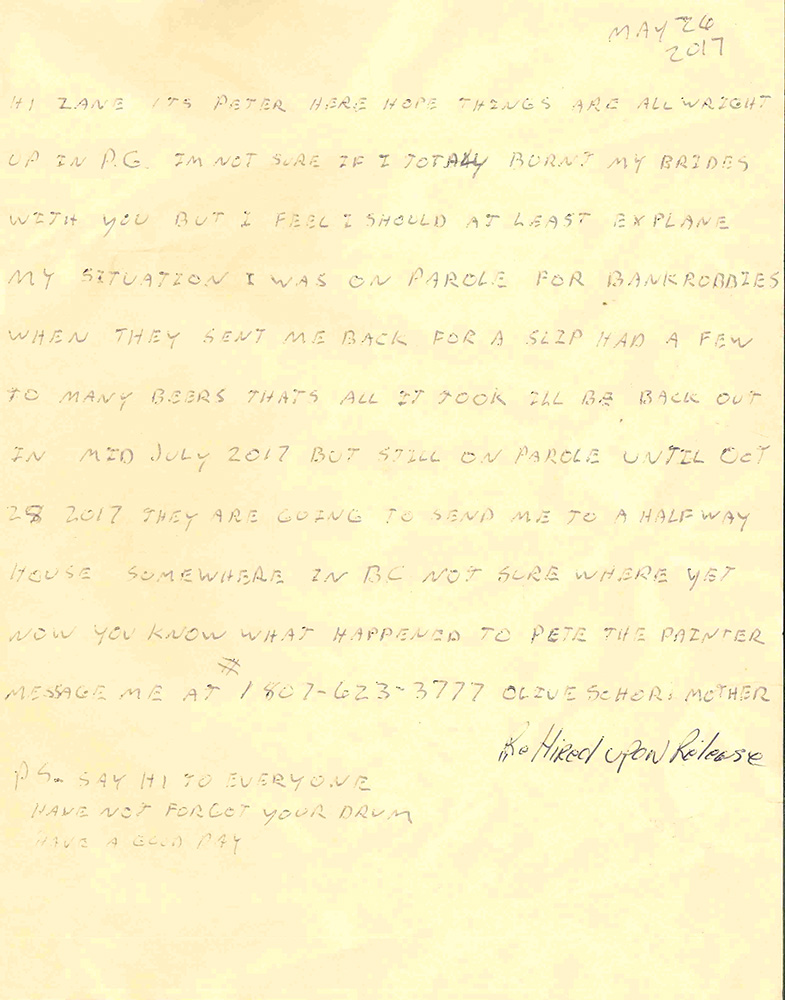 MAY 26
2017
HI ZANE ITS PETER HERE HOPE THINGS ARE ALL WRIGHT
UP IN P.G. IM NOT SURE IF I TOTALLY BURNT MY BRIDES
WITH YOU BUT I FEEL I SHOULD AT LEAST EXPLANE
MY SITUATION I WAS ON PAROLE FOR BANKROBBIES
WHEN THEY SENT ME BACK FOR A SLIP HAD A FEW
TO MANY BEERS THATS ALL IT TOOK ILL BE BACK OUT
IN MID JULY 2017 BUT STILL ON PAROLE UNTIL OCT
28 2017 THEY ARE GOING TO SEND ME TO A HALFWAY
HOUSE SOMEWHERE IN BC NOT SURE WHERE YET
NOW YOU KNOW WHAT HAPPENED TO PETE THE PAINTER
MESSAGE ME AT # 1807-623-3777 OLIVE SCHORI MOTHER
Re Hired upon Release
PS. SAY HI TO EVERYONE
HAVE NOT FORGOT YOUR DRUM
HAVE A GOOD DAY